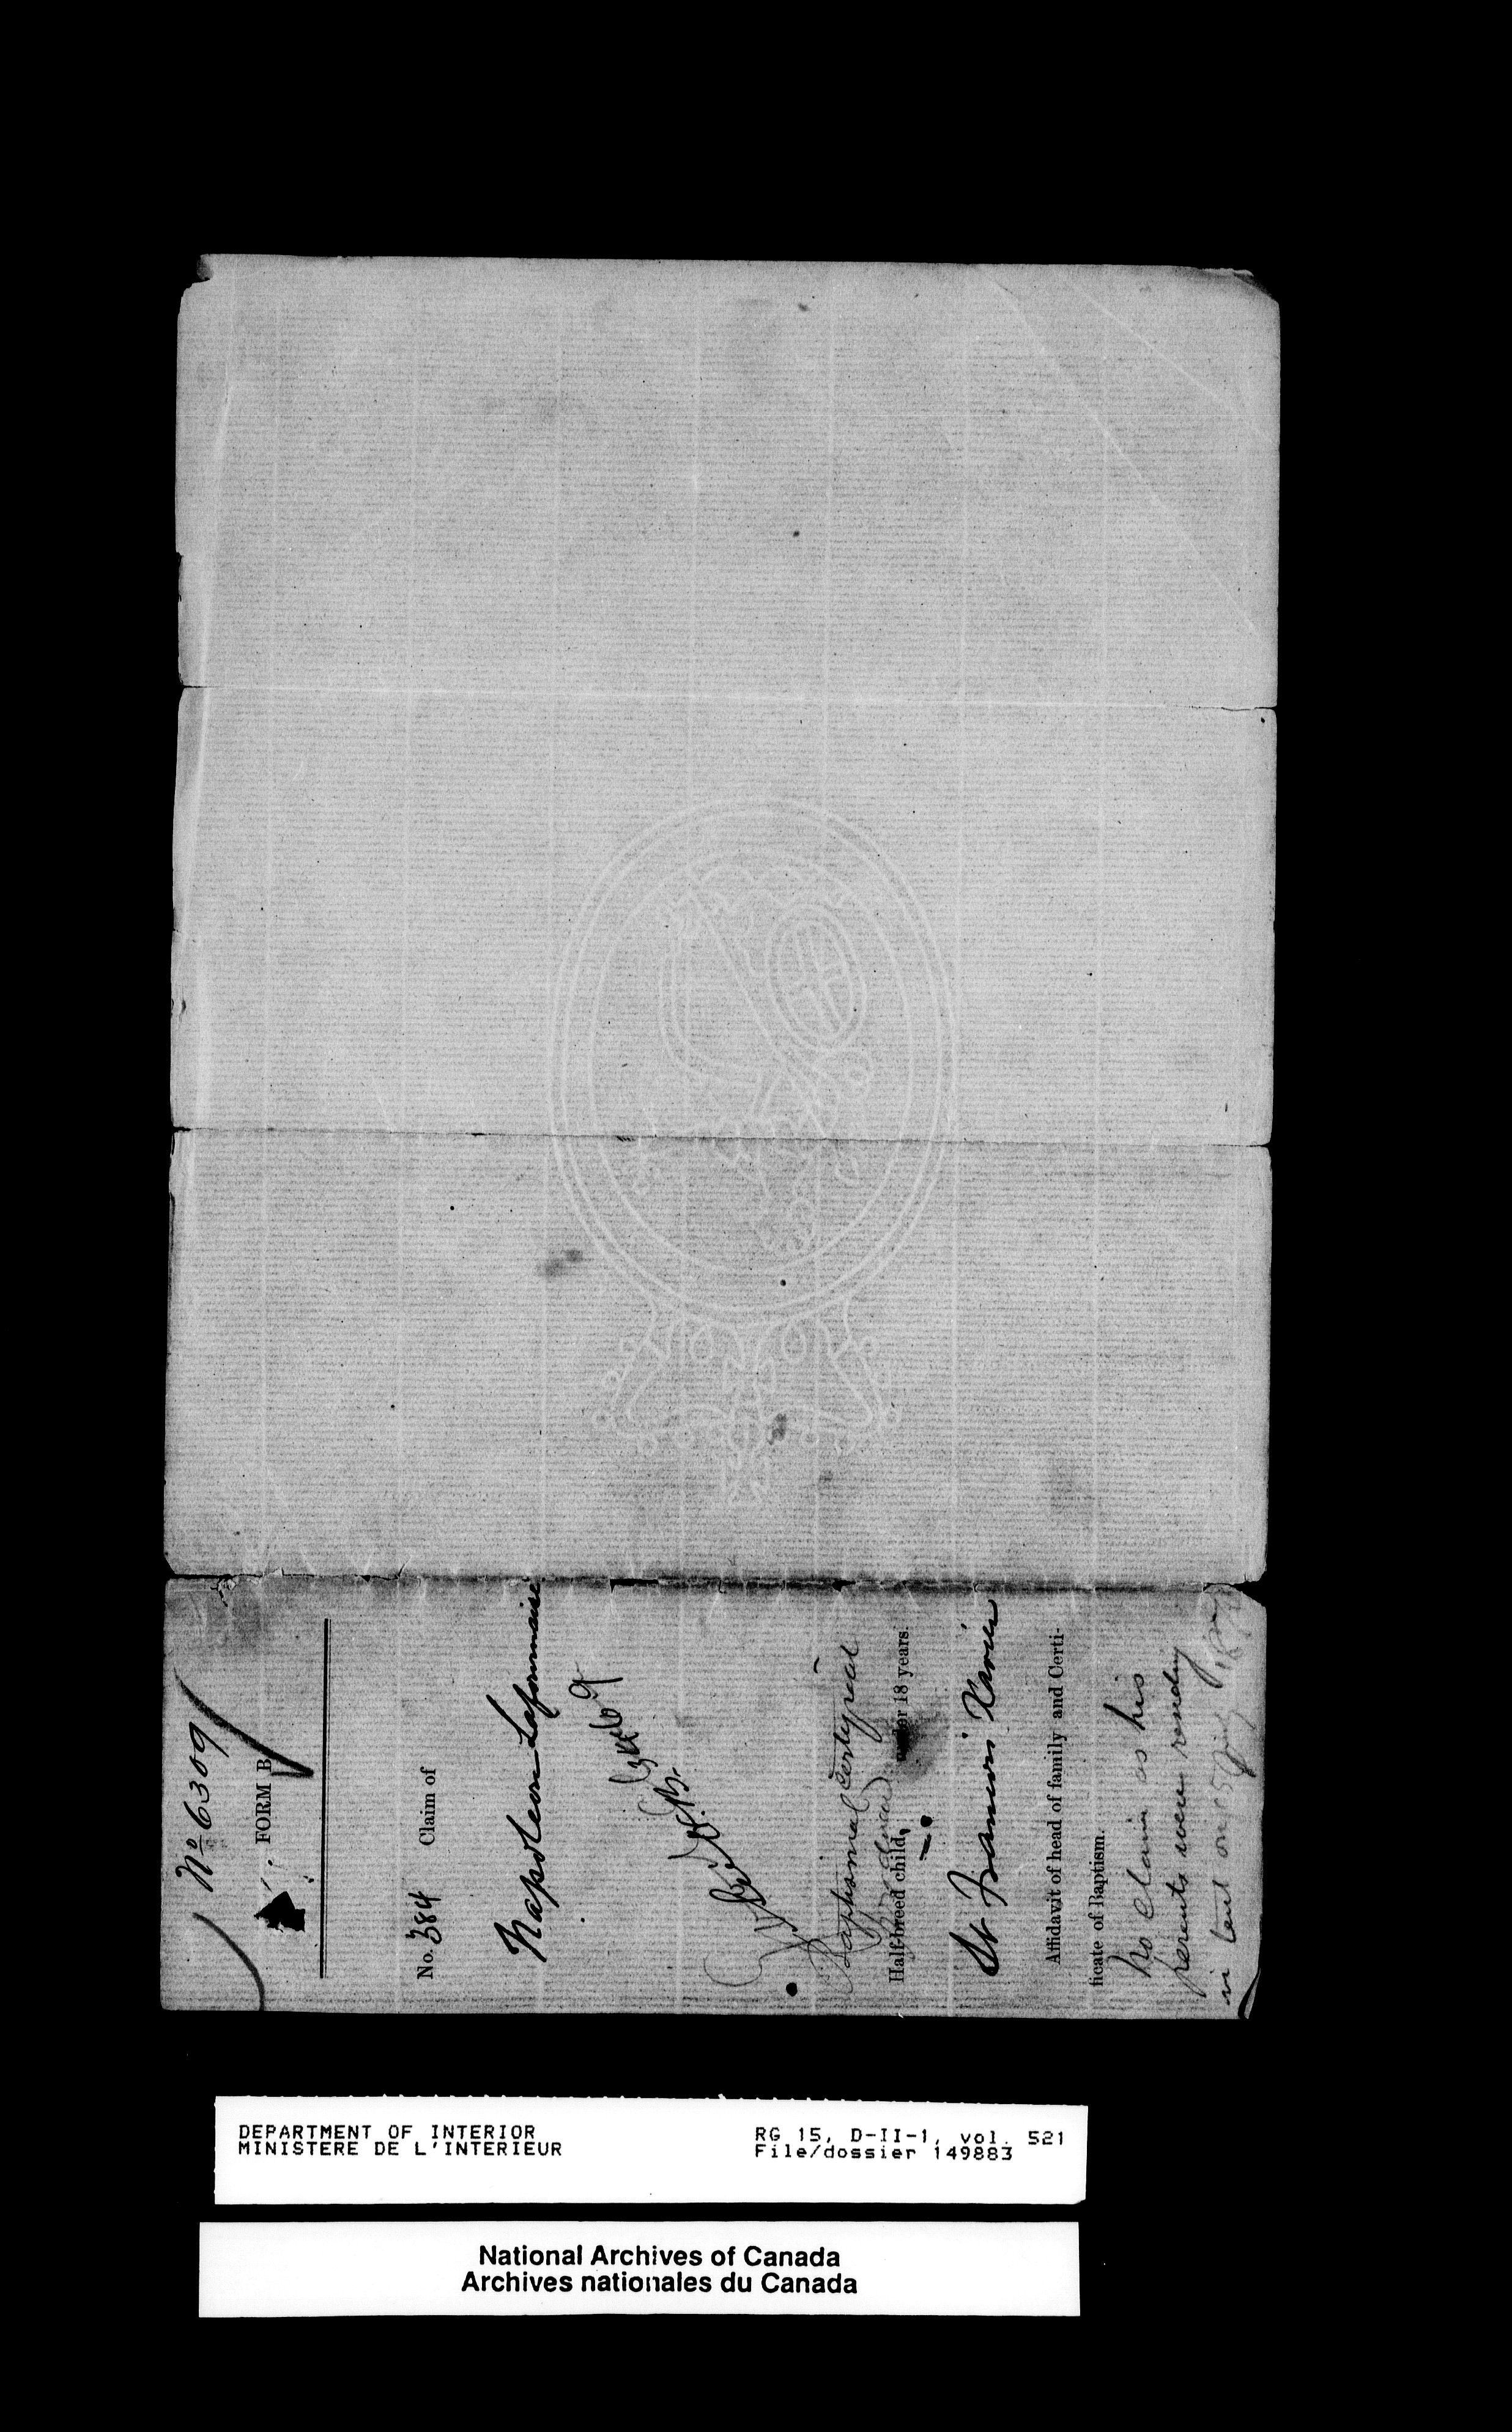 No 6309
FORM B
No. 384 Claim of
Napoleon Lafournaise
Baptismal Certificat
Half-breed child, under 18 years.
St Francois Xavier
Affidavit of head of family and Certi-
ficate of Baptism.
no claim as his
parents were residing
in
on 15 July 1870
DEPARTMENT OF INTERIOR
MINISTERE DE L'INTERIEUR
RG 15, D-II-1, vol. 521
File/dossier 149883
National Archives of Canada
Archives nationales du Canada